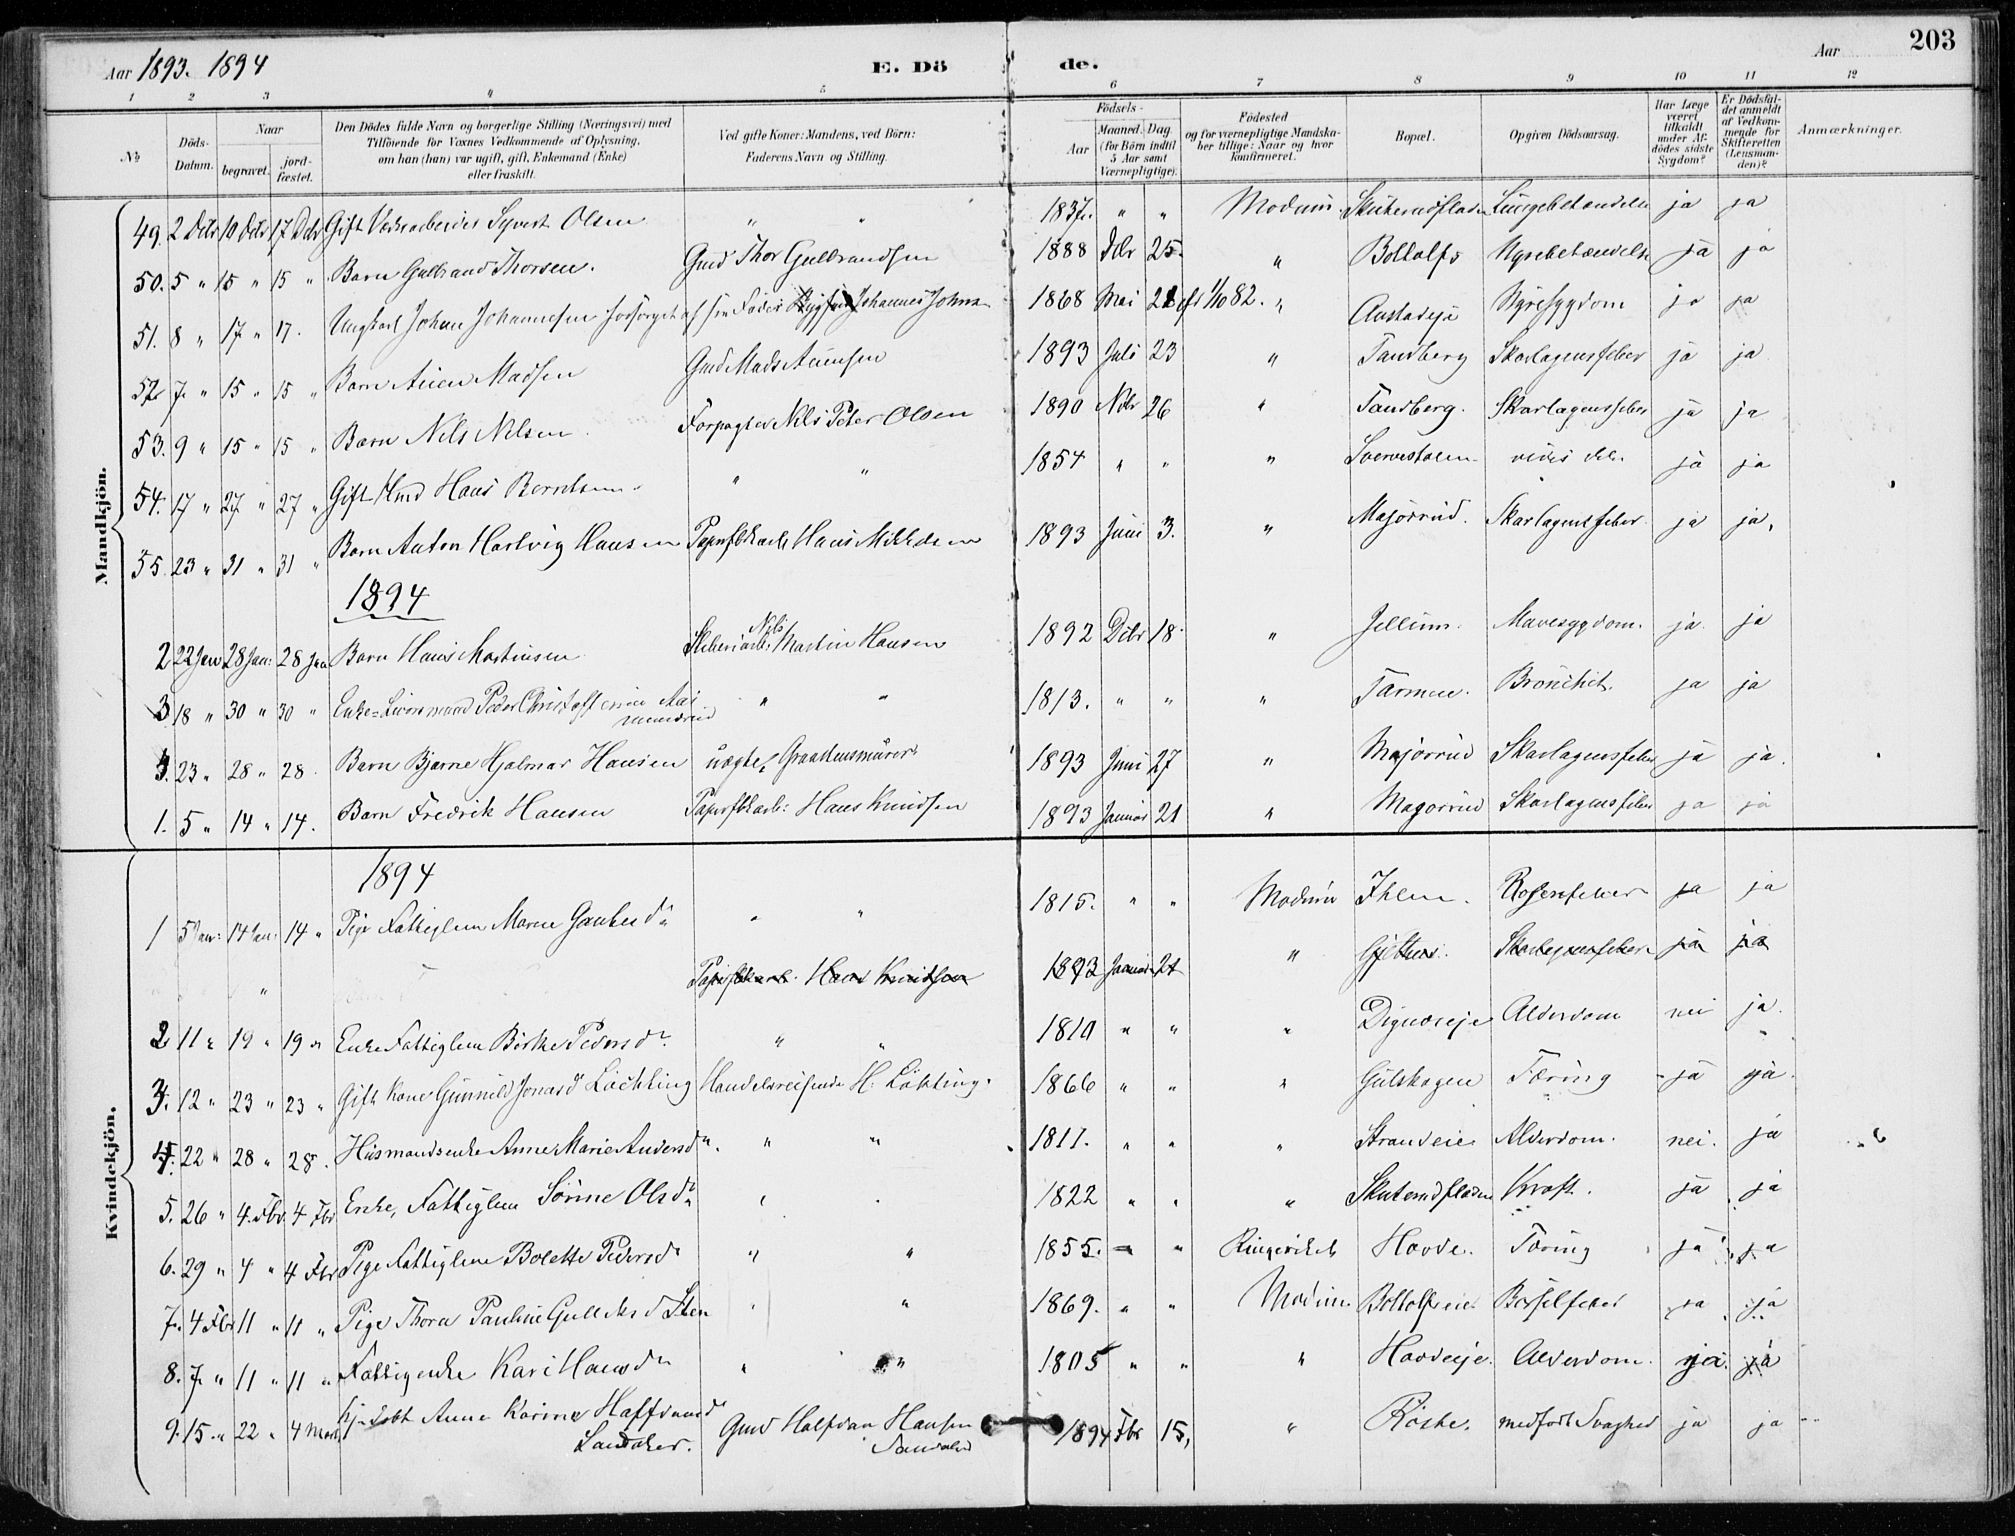 Aar 1893. 1894
E. Dö de.
Aar
203
1 2 3 4 5 6 7 8 9 10 11 12
№
Döds-Datum.
Naar
begravet.
jord-fæstet.
Den Dödes fulde Navn og borgerlige Stilling (Næringsvei) med
Tilföiende for Voxnes Vedkommende af Oplysning,
om han (hun) var ugift, gift, Enkemand (Enke)
eller fraskilt.
Ved gifte Koner: Mandens, ved Börn:
Faderens Navn og Stilling.
Födsels-
Aar
Maaned. Dag.
(for Börn indtil
5 Aar samt
Værnepligtige).
Födested
og for værnepligtige Mandska-
ber tillige: Naar og hvor
konfirmeret.
Bopæl.
Opgiven Dödsaarsag.
Har Læge
været
tilkaldt
under Af-
dödes sidste
Sygdom?
Er Dödsfal-
det anmeldt
af Vedkom-
mende for
Skifteretten
(Lensman-
den)?
Anmærkninger.
Mandkjön.
49. 2 Dcbr 10 Dcbr 17 Dcbr Gift Olsen " " 1837. " " Modum. Skuterudfladen Lungebetændelse ja ja
50. 5 " 15 " 15 " Barn Gulbrand Thorsen. Gmd Thor Gulbrandsen 1888 Dcbr 25. " Bottolfs Nyrebetændelse ja ja
51. 8 " 17 " 17. Ungkarl Johan Johannesen forsørget af sin Fader Johannes Johns 1868 Mai 21 1/10 82. " Nyresygdom ja ja
52 7 " 15 " 15 " Barn Madsen Gmd Mads 1893 Juli 23 " Tandberg Skarlagensfeber ja ja
53. 9 " 15 " 15 " Barn Nils Nilsen Forpagter Nils Peter Olsen 1890 Nvbr 26 " Tandberg. Skarlagensfeber ja ja
54. 17 " 27 " 27 " Gift Hmd Hans Berntsen. " " 1854 " " " ja ja
55. 23 " 31 " 31 " Barn Anton Hartvig Hansen Papirfbkarb Hans Mikkelsen 1893 Juni 3. " Majorrud. Skarlagensfeber ja ja.
1894
2 22 Jan 28 Jan: 28 Jan Barn Hans Martinsen Sliberiarb: Nils Martin Hansen 1892 Dcbr 18. " Jellum. Mavesygdom. ja. ja
3 18 " 30 " 30 " Peder Christoffersen " " 1813. " " " Tarmen. Bronchit. ja ja
4. 23 " 28 " 28. Barn Bjarne Hjalmar Hansen uægte, Graastensmurer 1893 Juni 27 " Majorrud Skarlagensfeber ja ja.
1. 5 " 14 " 14. Barn Fredrik Hansen Papirfbkarb: Hans Knudsen 1893 Januar 21 " Majorrud Skarlagensfeber ja ja
Kvindekjön.
1894
1 5 Jan: 14 Jan: 14 " Pige Fattiglem Maren Gautesdr " " 1815. " " Modum Ihlen. Rosenfeber ja ja
Papirfbkarb. Hans Knudsen 1893 Januar 21 " Gjethus. Skarlagensfeber ja ja
2 11 " 19 " 19 " Enke Fattiglem Birthe Pedersdr " " 1810 " " " Alderdom nei ja.
3. 12 " 23 " 23 " Gift Kone Gunnild Jonasd Löchting Handelsreisende H. Lökting. 1866 " " " Gulskogen Tæring ja ja.
4. 22 " 28 " 28. Husmandsenke Anne Marie Andersdr. " " 1811. " " " Strandeie Alderdom. nei. ja
5. 26 " 4. Fbr. 4 Fbr Enke, Fattiglem Sörine Olsdr " " 1822 " " " Skuterudfladen Kræft. ja ja
6. 29 " 4 " 4 Fbr Pige Fattiglem Bolette Pedersdr " " 1855. " " Ringerike Hovde. Tæring ja ja
7. 4 Fbr 11 " 11 " Pige Thora Pauline Gulliksd Sten " " 1869. " " Modum Bottolfseie. Barselfeber ja ja
8. 7 " 11 " 11 " Fattigenke Kari Hansdr " " 1805 " " " Hovdeeje. Alderdom. nei. ja
9. 15. " 22 " 4 Marts hj. döbt Anne Karine Halfdansdr Sandaker. Gmd Halfdan Hansen Sandaker 1894 Fbr 15, " medfödt Svaghed ja ja